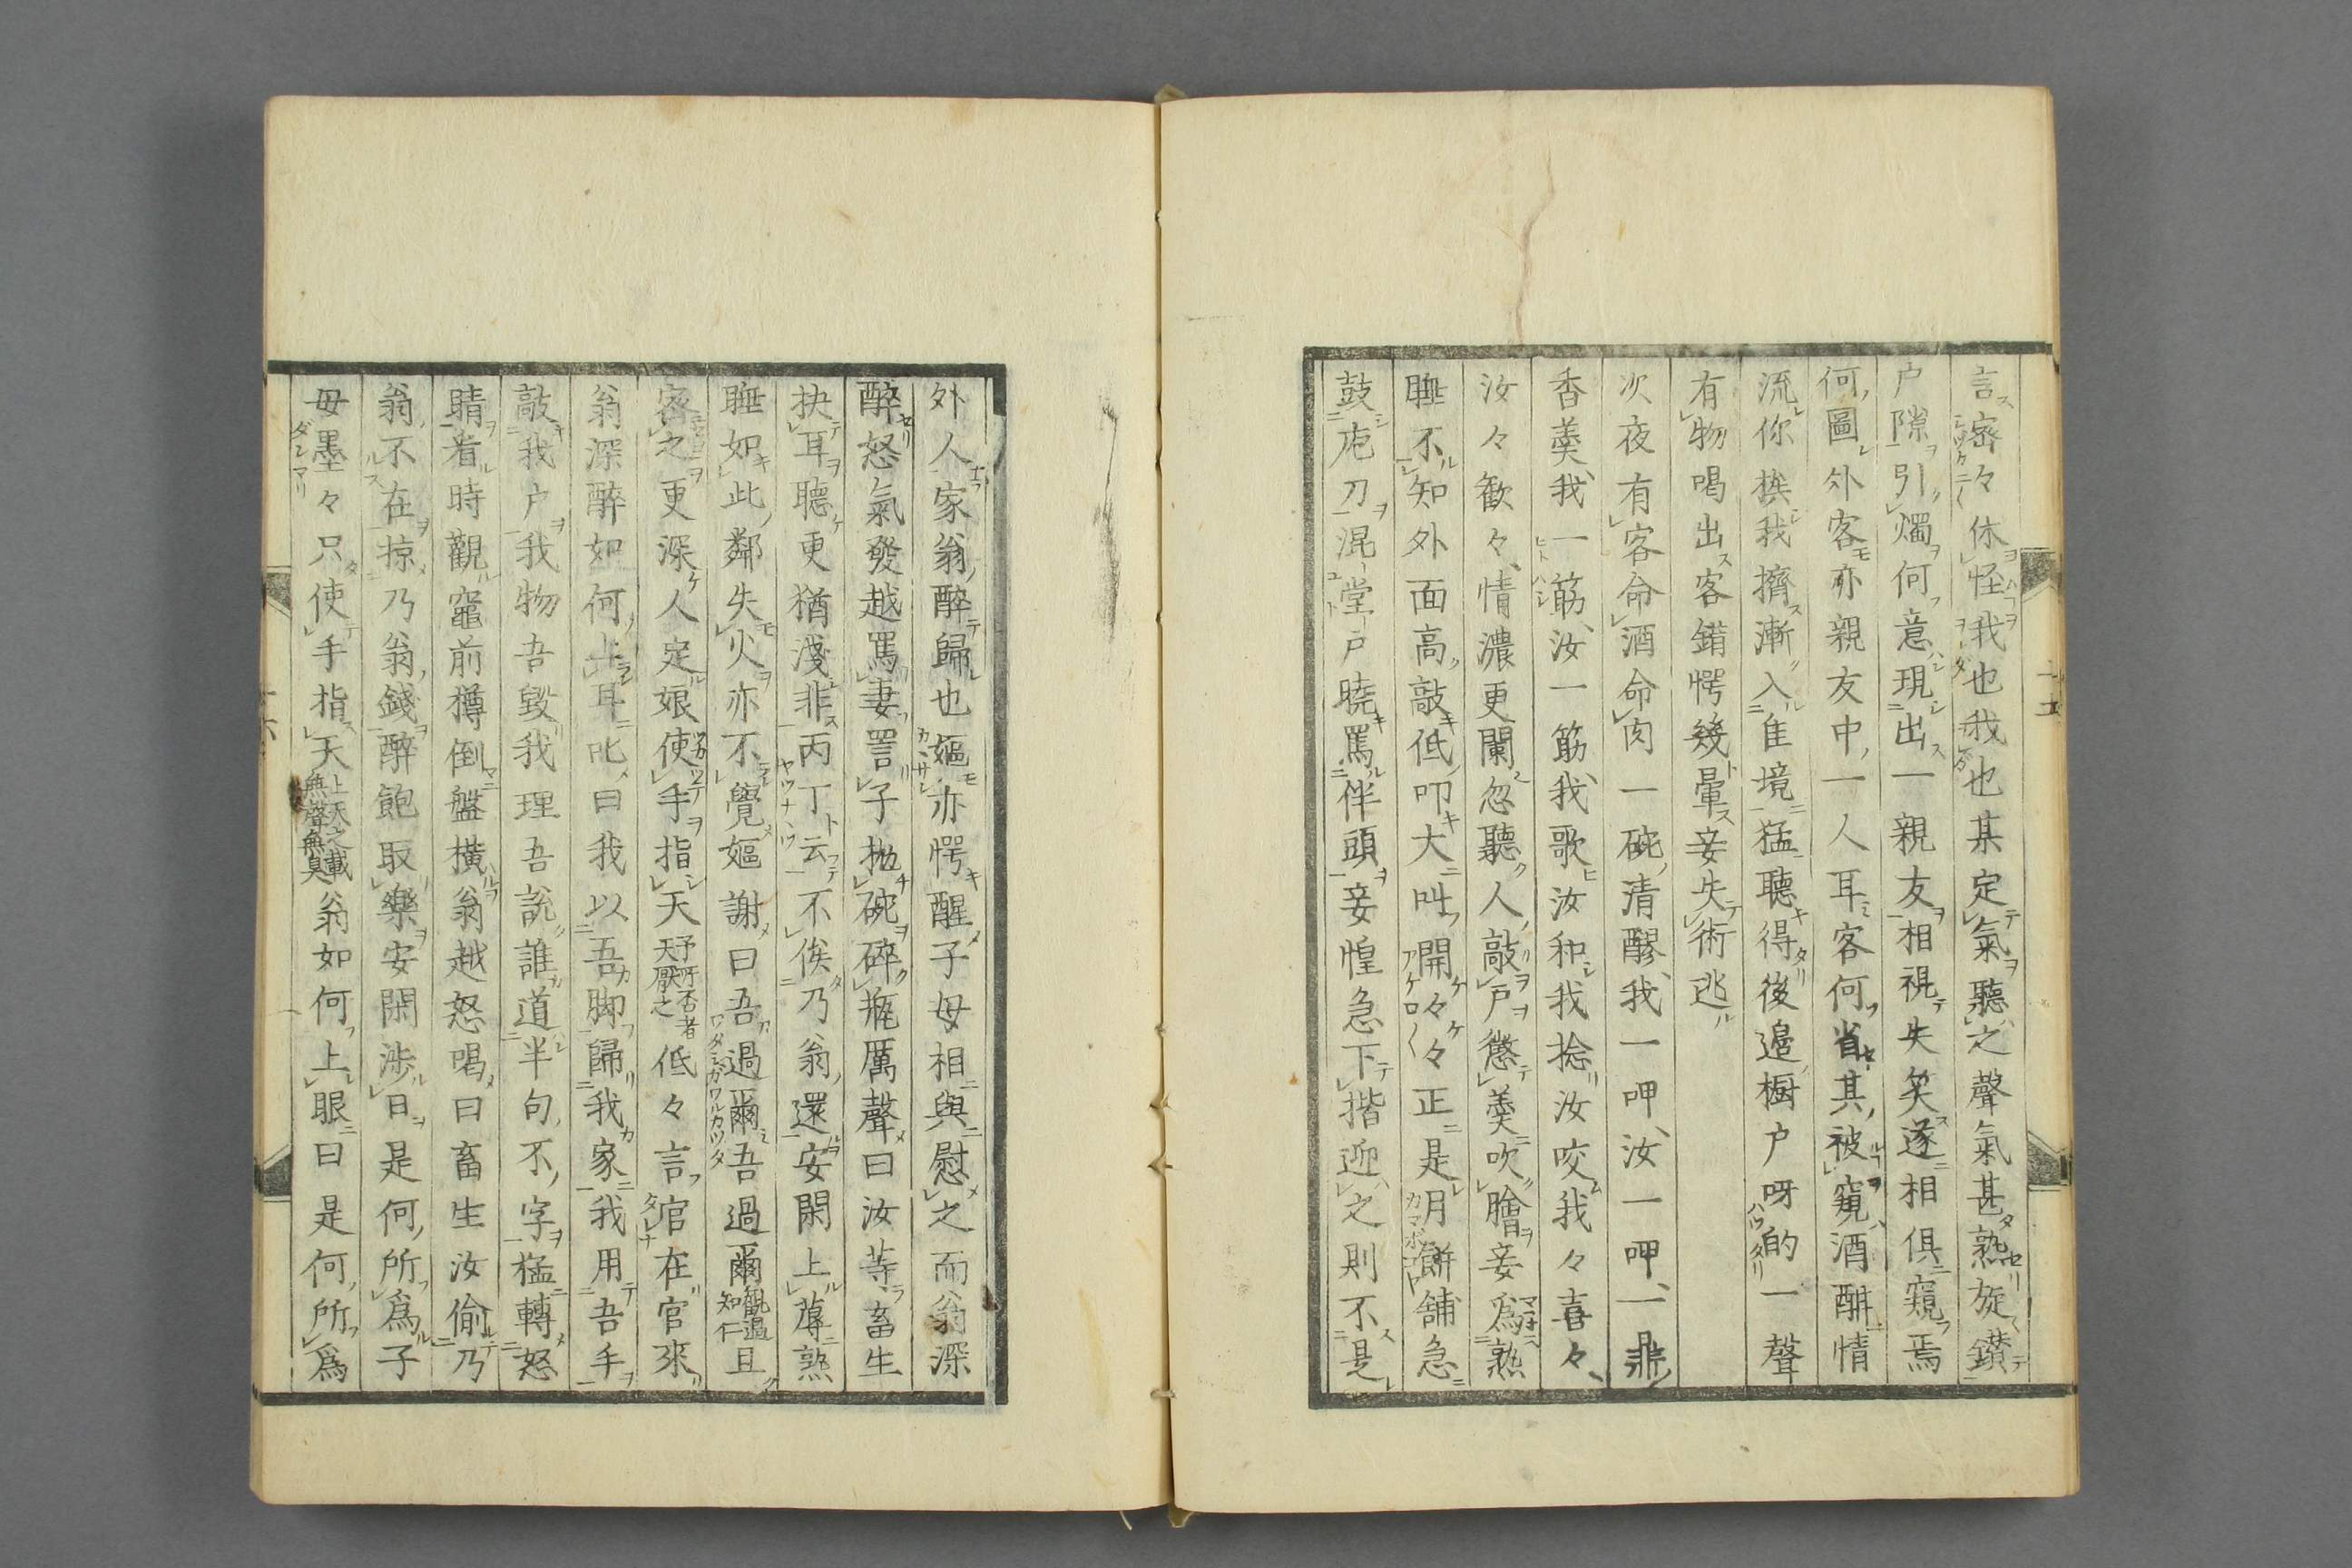 言密々休怪我也我也某定氣聽之聲氣甚熟旋鑚
户隙引燭何意現出一親友相視失笑遂相俱窺焉
何圖外客亦親友中一人耳客何省其被窺酒酣情
流你挨我擠漸入佳境猛聽得後邉橱户呀的一聲
有物喝出客錯愕幾暈妾失術逃
次夜有客命酒命肉一碗清醪我一呷汝一呷一鼎
香羹我一筯汝一筯我歌汝和我捻汝咬我々喜々
汝々歓々情濃更闌忽聽人敲户懲羹吹膾妾爲熟
睡不知外面高敲低叩大叫開々々正是月餅舖急
鼓庖刀混堂户曉罵伴頭妾惶急下揩迎之則不是
外人家翁醉歸也嫗亦愕醒子母相與慰之而翁深
醉怒氣發越罵妻詈子抛碗碎瓶厲聲曰汝等畜生
抉耳聽更猶淺非丙丁云不俟乃翁還安閑上蓐熟
睡如此鄰失火亦不覺嫗謝曰吾過爾吾過爾觀過知仁且
客之更深人定娘使手指天予所否者天厭之低々言官在官來
翁深醉如何上耳叱曰我以吾脚歸我家我用吾手
敲我户我物吾毀我理吾説誰道半句不字猛轉怒
睛看時觀竈前樽倒盤横翁越怒喝曰畜生汝偷乃
翁不在掠乃翁錢醉飽取樂安閑渉日是何所爲子
母墨々只使手指天上天之載無聲無臭翁如何上眼曰是何所爲